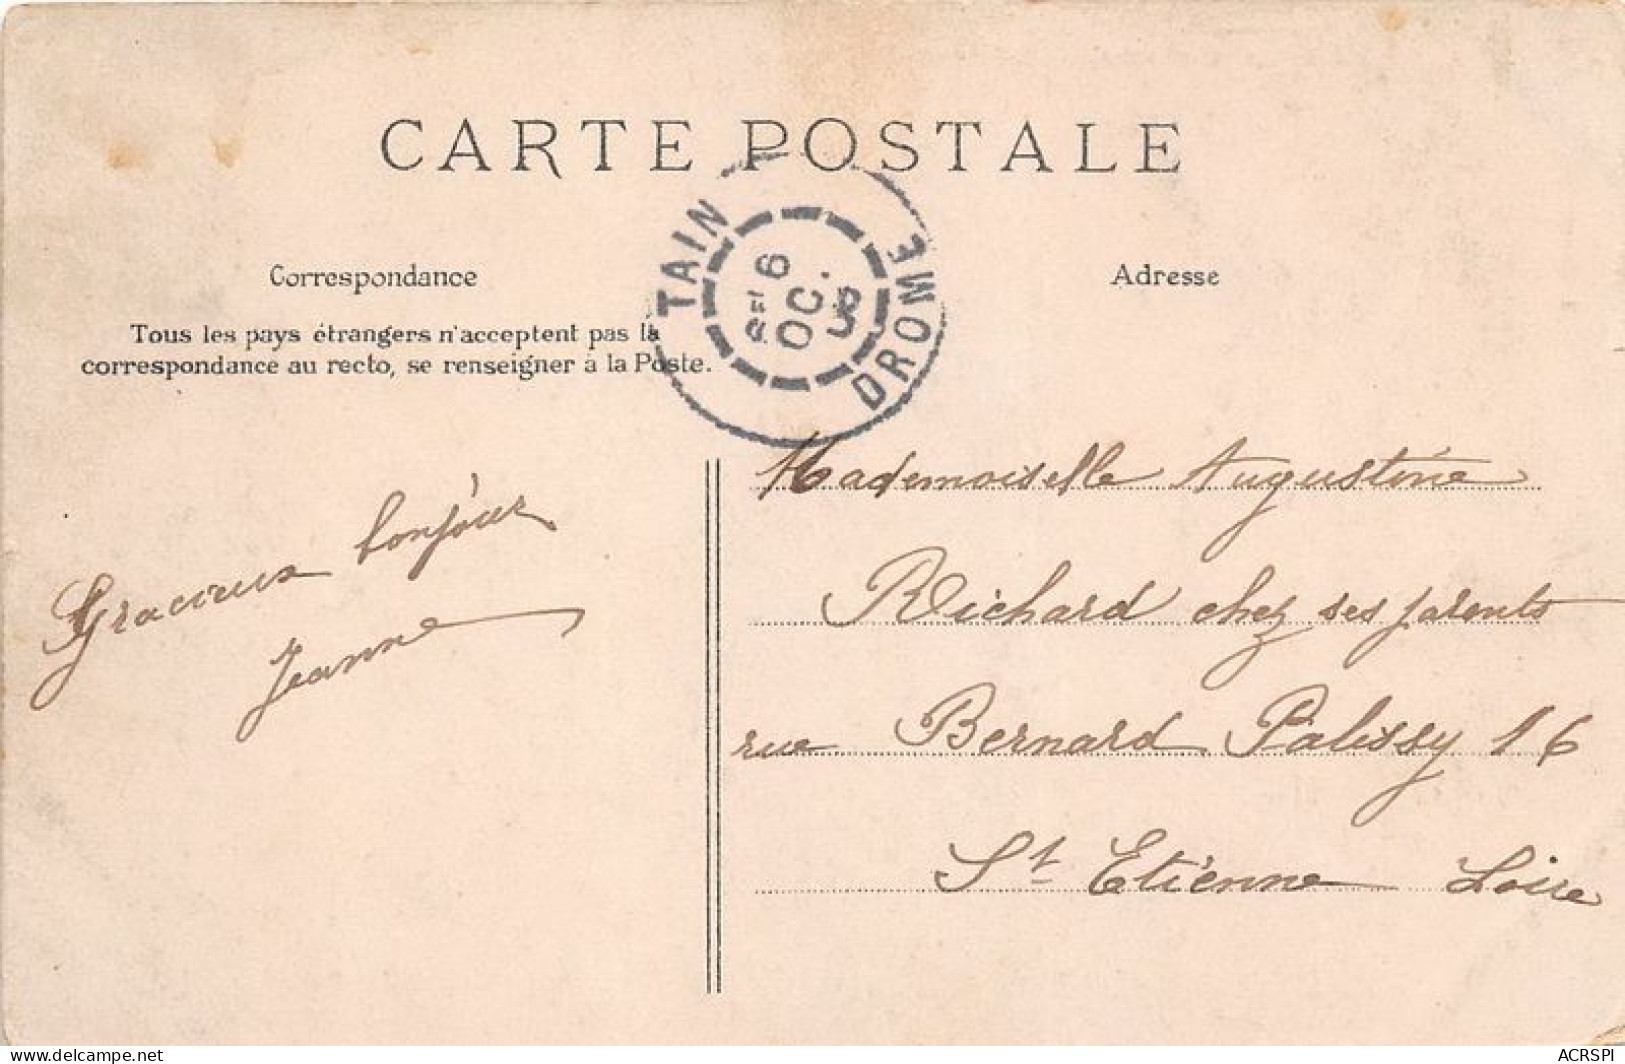 CARTE POSTALE
TAIN
DROME
6
OC.
Correspondance
Adresse
Tous les pays étrangers n'acceptent pas la
correspondance au recto, se renseigner à la Poste.
Gracieux bonjour
Jeanne
Mademoiselle Augustine
Richard chez ses parents
rue Bernard Palissy 16
St Etienne Loire
www.delcampe.net
ACRSPI